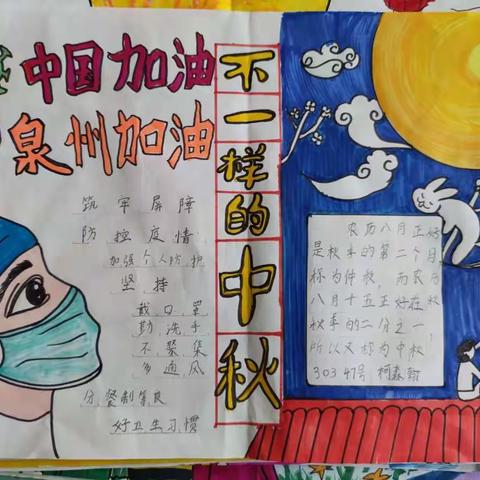 中国加油
泉州加油
不一样的中秋
筑牢屏障
防控疫情
加强个人防护
坚持
戴口罩
勤洗手
不聚集
多通风
分餐制等良
好卫生习惯
农历八月正好
是秋季的第二个月
称为仲秋，而农历
八月十五正好在秋
秋季的二分之一，
所以又称为中秋
303 47号 柯森翰